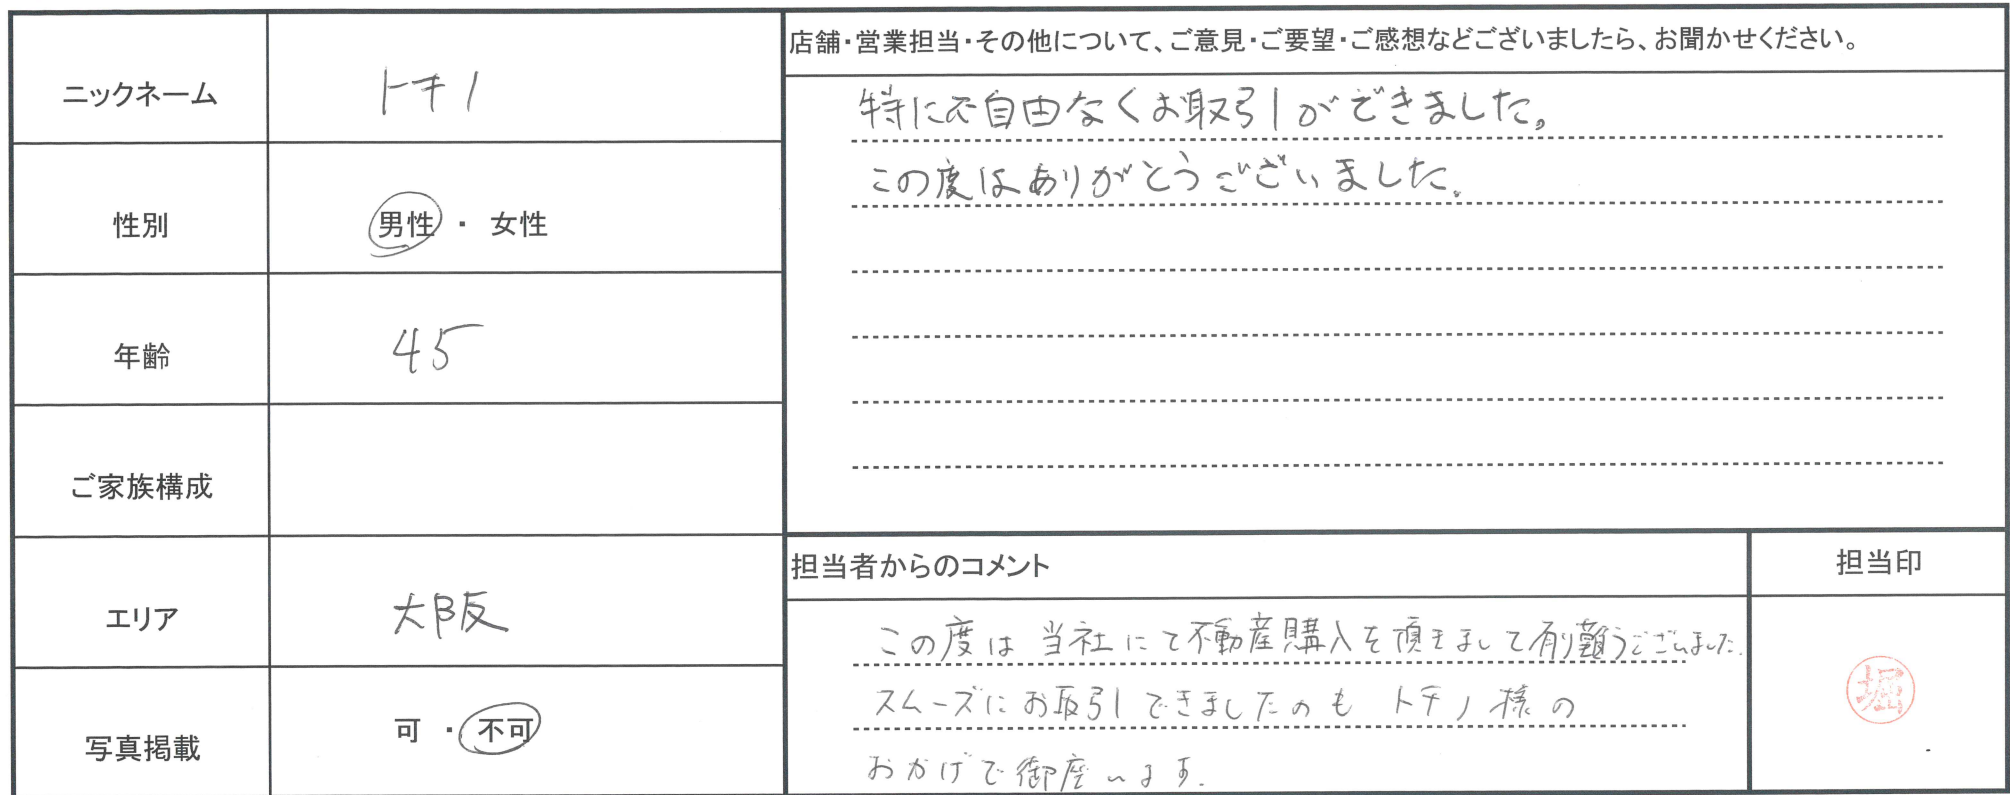 ニックネーム
トチノ
性別
男性 ・ 女性
年齢
45
ご家族構成
エリア
大阪
写真掲載
可 ・ 不可
店舗・営業担当・その他について、ご意見・ご要望・ご感想などございましたら、お聞かせください。
特に不自由なくお取引ができました。
この度はありがとうございました。
担当者からのコメント
この度は当社にて不動産購入を頂きまして有り難うございました。
スムーズにお取引できましたのもトチノ様の
おかげで御座います。
担当印
堀